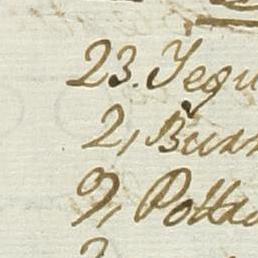 23. Jequ
2, Buss
9, Potta